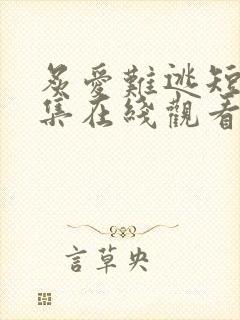 炙愛難逃短
集在綫觀看
言草央